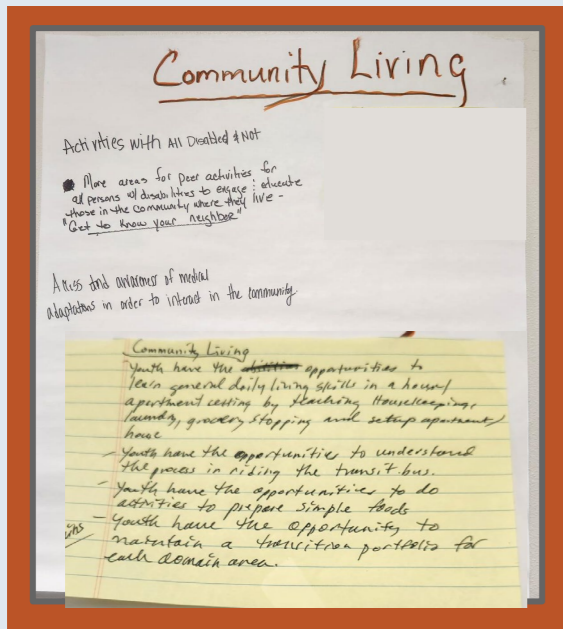 Community Living
Activities with All Disabled & Not
More areas for peer activities for
all persons w/ disabilities to engage : educate
those in the community where they live -
"Get to know your neighbor"
Access and awareness of medical
adaptations in order to interact in the community
Community Living
- Youth have the opportunities to
learn general daily living skills in a house/
apartment setting by teaching Housekeeping,
laundry, grocery stopping and setup apartment/
home
- Youth have the opportunities to understand
the process in riding the transit bus.
- Youth have the opportunities to do
activities to prepare simple foods
- Youth have the opportunity to
maintain a transition portfolio for
each domain area.